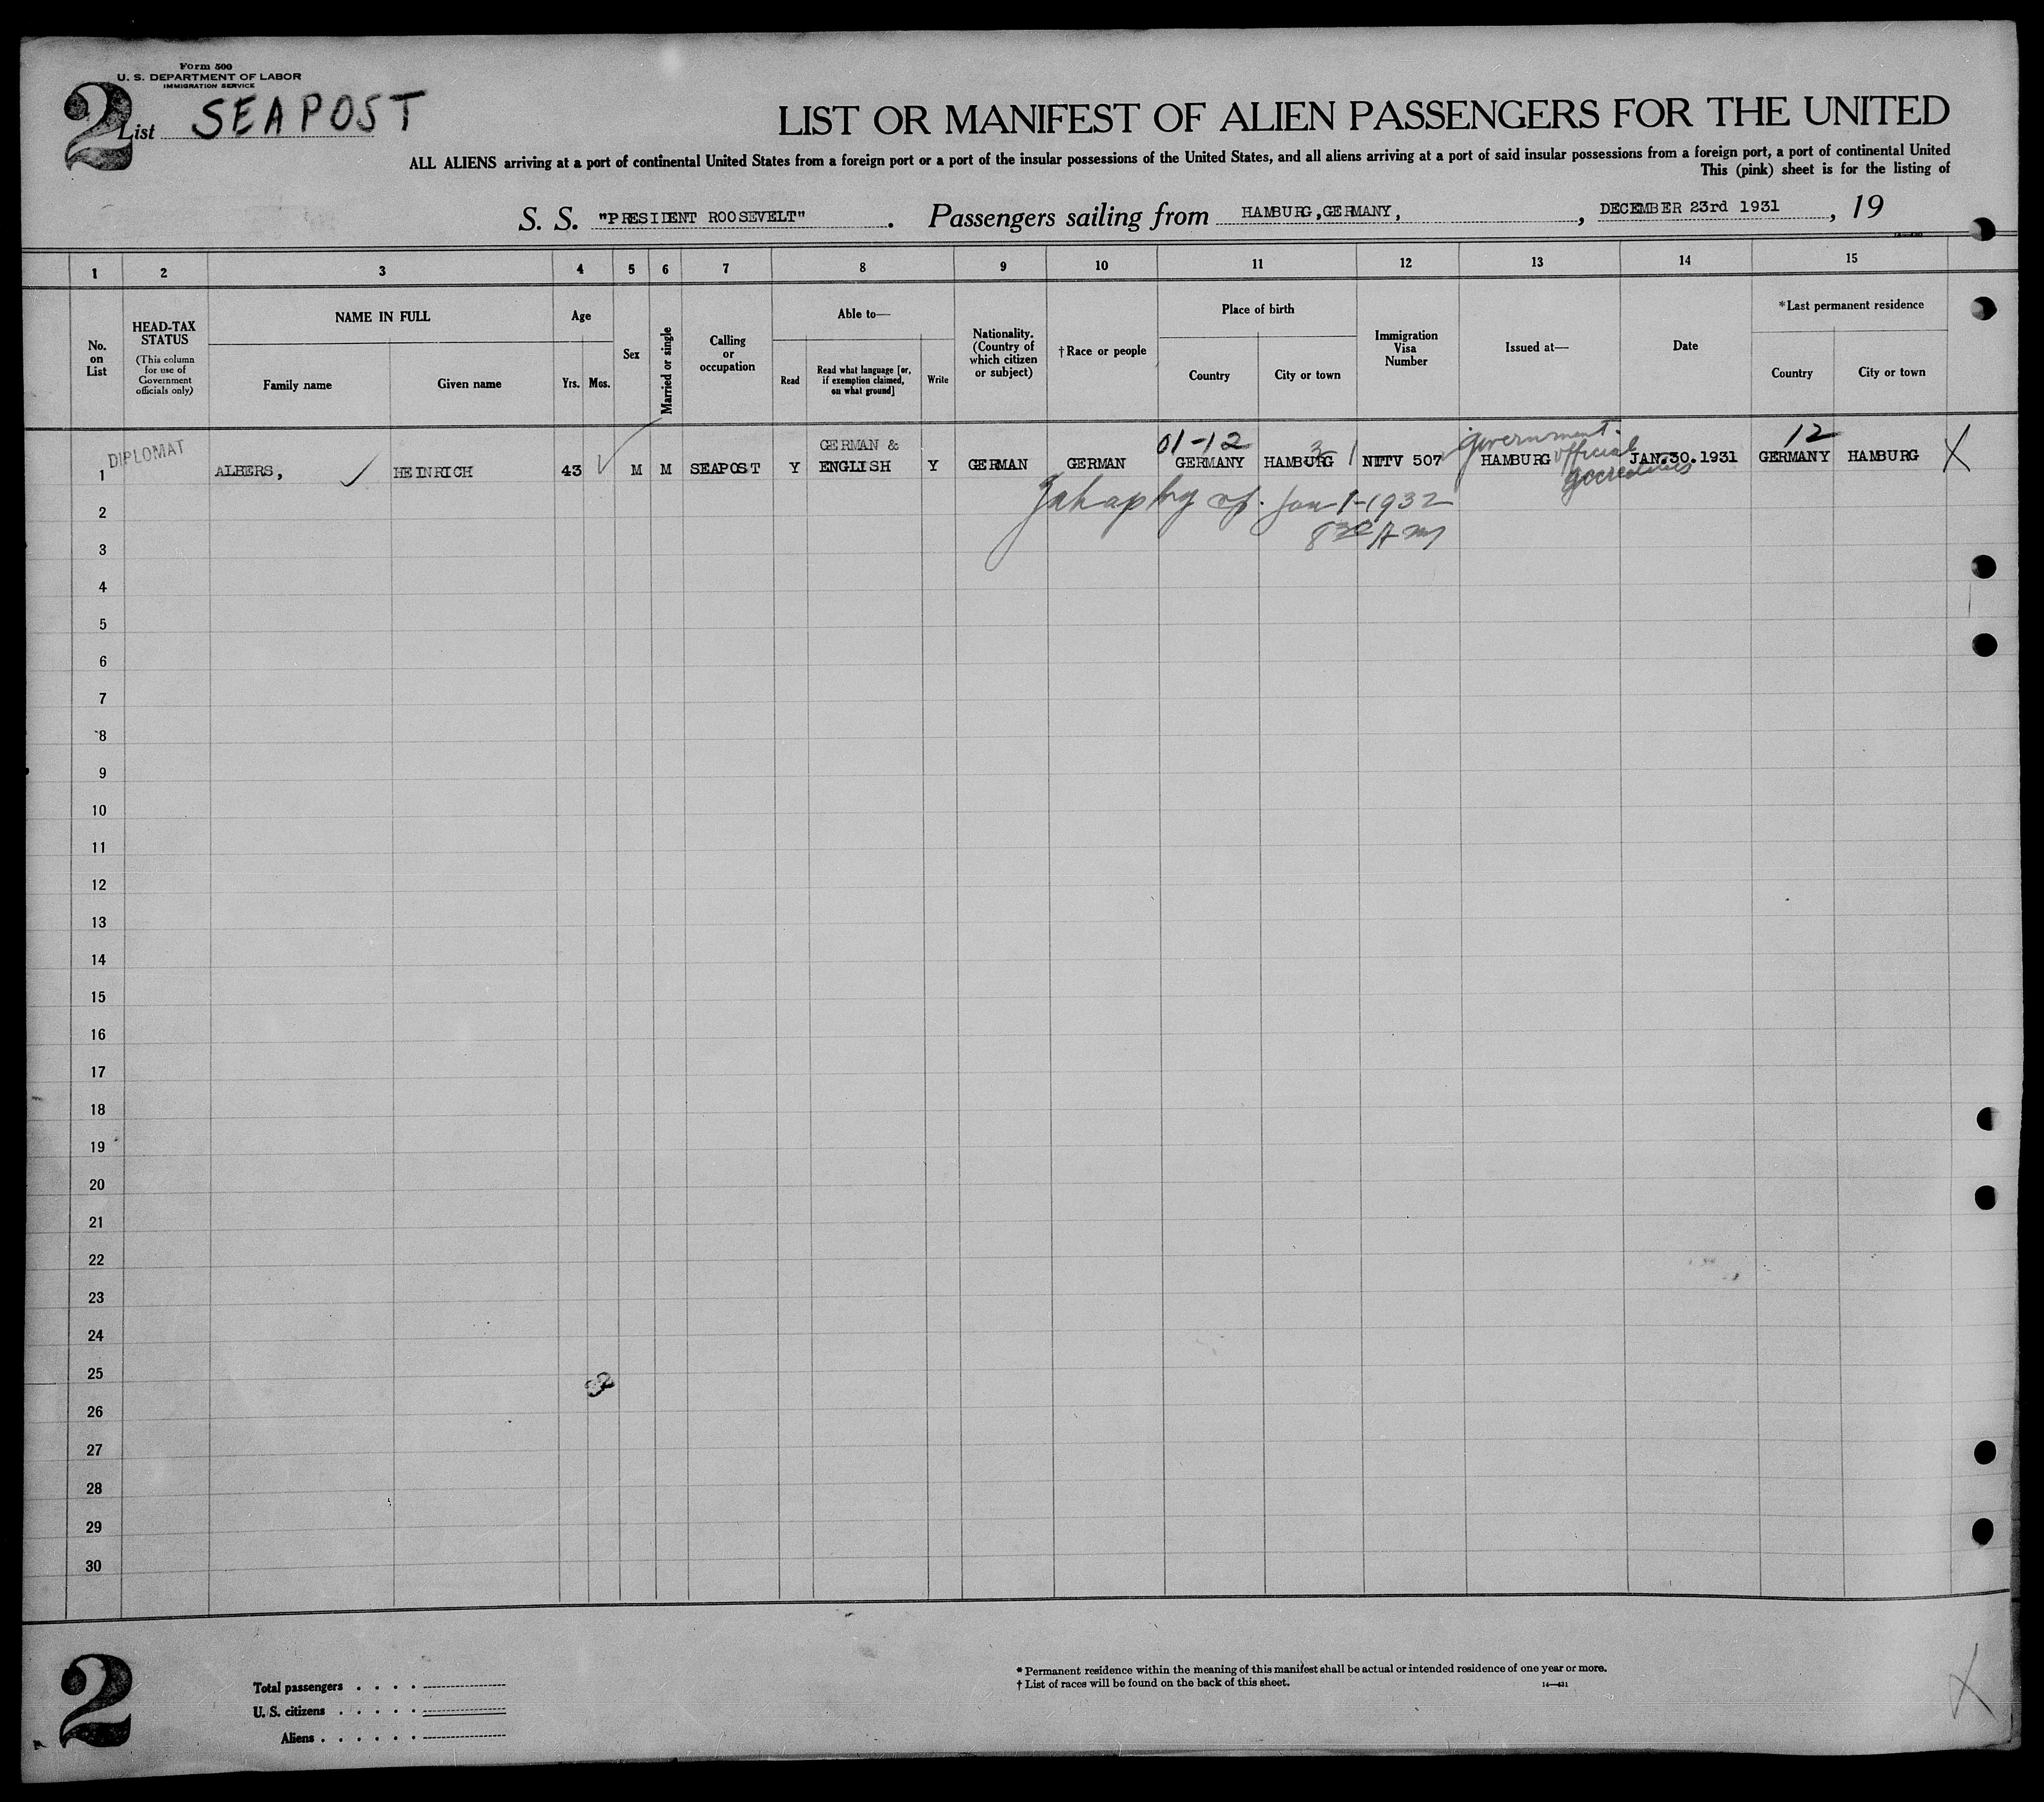 Form 500
U. S. DEPARTMENT OF LABOR
IMMIGRATION SERVICE
2
List SEAPOST
LIST OR MANIFEST OF ALIEN PASSENGERS FOR THE UNITED
ALL ALIENS arriving at a port of continental United States from a foreign port or a port of the insular possessions of the United States, and all aliens arriving at a port of said insular possessions from a foreign port, a port of continental United
This (pink) sheet is for the listing of
S. S. "PRESIDENT ROOSEVELT". Passengers sailing from HAMBURG,GERMANY, , DECEMBER 23rd 1931 , 19
1 2 3 4 5 6 7 8 9 10 11 12 13 14 15
No. on List
HEAD-TAX STATUS
(This column for use of Government officials only)
NAME IN FULL
Family name Given name
Age
Yrs. Mos.
Sex
Married or single
Calling or occupation
Able to—
Read
Read what language [or, if exemption claimed, on what ground]
Write
Nationality. (Country of which citizen or subject)
†Race or people
Place of birth
Country City or town
Immigration Visa Number
Issued at—
Date
*Last permanent residence
Country City or town
DIPLOMAT
GERMAN &
01-12 3 1 government official 12
1 ALBERS, HEINRICH 43 M M SEAPOST Y ENGLISH Y GERMAN GERMAN GERMANY HAMBURG 507 HAMBURG JAN.30.1931 GERMANY HAMBURG X
Jan 1-1932
2
8 30 A M
3
4
5
6
7
8
9
10
11
12
13
14
15
16
17
18
19
20
21
22
23
24
25
26
27
28
29
30
2
Total passengers . . . .
U. S. citizens . . . . .
Aliens . . . . . .
* Permanent residence within the meaning of this manifest shall be actual or intended residence of one year or more.
† List of races will be found on the back of this sheet. 14—431
X